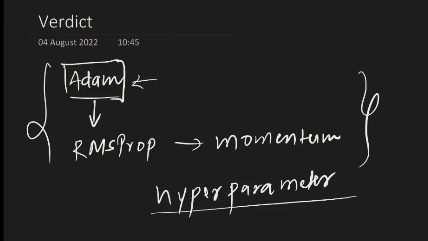 Verdict
04 August 2022 10:45
Adam
RMSProp → momentum
hyperparameter